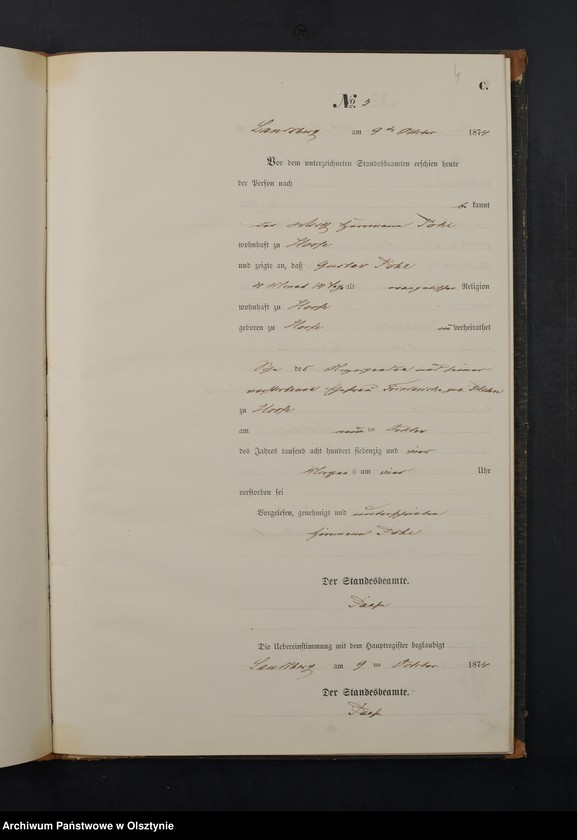 4
C.
No. 3
Landsberg am 9ten Oktober 1874
Vor dem unterzeichneten Standesbeamten erschien heute
der Person nach
be kannt
der Herrmann Pohl
wohnhaft zu Hoofe
und zeigte an, daß Gustav Pohl
4 Monat 14 Tage alt evangelischer Religion
wohnhaft zu Hoofe
geboren zu Hoofe unverheirathet
Sohn des und seiner
Ehefrau Friederike geb.
zu Hoofe
am neun ten Oktober
des Jahres tausend acht hundert siebenzig und vier
Morgens um vier Uhr
verstorben sei
Vorgelesen, genehmigt und unterschrieben
Herrmann Pohl
Der Standesbeamte.
Die Uebereinstimmung mit dem Hauptregister beglaubigt
Landsberg am 9 ten Oktober 1874
Der Standesbeamte.
Archiwum Państwowe w Olsztynie